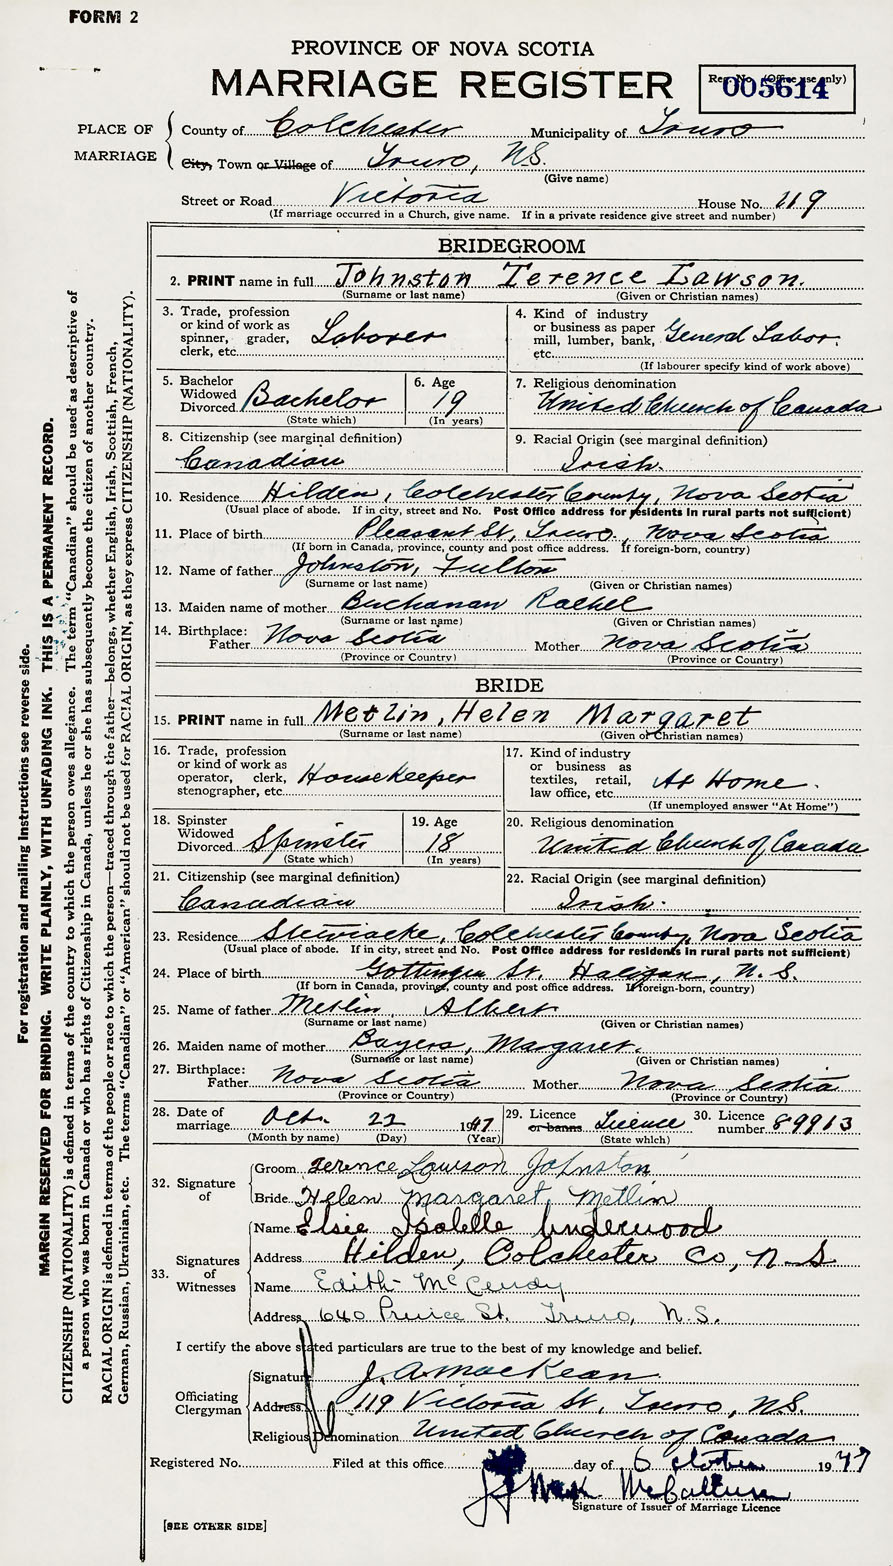 FORM 2
PROVINCE OF NOVA SCOTIA
MARRIAGE REGISTER
Reg. No. (Office use only)
005614
PLACE OF MARRIAGE
County of Colchester Municipality of Truro
City, Town or Village of Truro, N.S.
(Give name)
Street or Road Victoria House No. 119
(If marriage occurred in a Church, give name. If in a private residence give street and number)
BRIDEGROOM
2. PRINT name in full Johnston Terence Lawson.
(Surname or last name) (Given or Christian names)
3. Trade, profession or kind of work as spinner, grader, clerk, etc. Laborer
4. Kind of industry or business as paper mill, lumber, bank, etc. General Labor.
(If labourer specify kind of work above)
5. Bachelor Widowed Divorced Bachelor
(State which)
6. Age 19
(In years)
7. Religious denomination
United Church of Canada
8. Citizenship (see marginal definition)
Canadian
9. Racial Origin (see marginal definition)
Irish.
10. Residence Hilden, Colchester County, Nova Scotia
(Usual place of abode. If in city, street and No. Post Office address for residents in rural parts not sufficient)
11. Place of birth Pleasant St, Truro, Nova Scotia
(If born in Canada, province, county and post office address. If foreign-born, country)
12. Name of father Johnston, Fulton
(Surname or last name) (Given or Christian names)
13. Maiden name of mother Buchanan Rachel
(Surname or last name) (Given or Christian names)
14. Birthplace: Father Nova Scotia Mother Nova Scotia
(Province or Country) (Province or Country)
BRIDE
15. PRINT name in full Metlin, Helen Margaret
(Surname or last name) (Given or Christian names)
16. Trade, profession or kind of work as operator, clerk, stenographer, etc. Housekeeper
17. Kind of industry or business as textiles, retail, law office, etc. At Home.
(If unemployed answer "At Home")
18. Spinster Widowed Divorced Spinster
(State which)
19. Age 18
(In years)
20. Religious denomination
United Church of Canada
21. Citizenship (see marginal definition)
Canadian
22. Racial Origin (see marginal definition)
Irish.
23. Residence Stewiacke, Colchester County, Nova Scotia
(Usual place of abode. If in city, street and No. Post Office address for residents in rural parts not sufficient)
24. Place of birth Gottingen St. Halifax, N.S.
(If born in Canada, province, county and post office address. If foreign-born, country)
25. Name of father Metlin Albert
(Surname or last name) (Given or Christian names)
26. Maiden name of mother Bayers, Margaret.
(Surname or last name) (Given or Christian names)
27. Birthplace: Father Nova Scotia Mother Nova Scotia
(Province or Country) (Province or Country)
28. Date of marriage Oct. 22 1947
(Month by name) (Day) (Year)
29. Licence or banns Licence
(State which)
30. Licence number 89913
32. Signature of
Groom Terence Lawson Johnston
Bride Helen Margaret Metlin
33. Signatures of Witnesses
Name Elsie Isabelle Underwood
Address Hilden, Colchester Co, N.S
Name Edith McCurdy
Address 640 Prince St. Truro, N.S.
I certify the above stated particulars are true to the best of my knowledge and belief.
Officiating Clergyman
Signature J. A. MacKean
Address 119 Victoria St, Truro, N.S.
Religious Denomination United Church of Canada
Registered No. Filed at this office day of October 1947
Signature of Issuer of Marriage Licence
[SEE OTHER SIDE]
For registration and mailing instructions see reverse side.
MARGIN RESERVED FOR BINDING. WRITE PLAINLY, WITH UNFADING INK. THIS IS A PERMANENT RECORD.
CITIZENSHIP (NATIONALITY) is defined in terms of the country to which the person owes allegiance. The term "Canadian" should be used as descriptive of
a person who was born in Canada or who has rights of Citizenship in Canada, unless he or she has subsequently become the citizen of another country.
RACIAL ORIGIN is defined in terms of the people or race to which the person—traced through the father—belongs, whether English, Irish, Scottish, French,
German, Russian, Ukrainian, etc. The terms "Canadian" or "American" should not be used for RACIAL ORIGIN, as they express CITIZENSHIP (NATIONALITY).